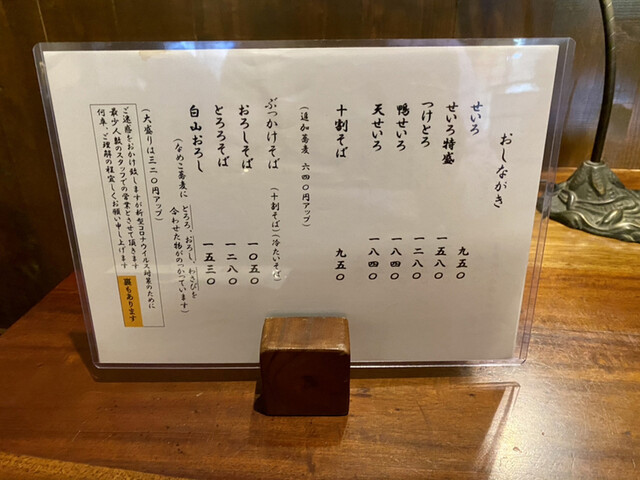 おしながき
せいろ 九五〇
せいろ特盛 一五八〇
つけとろ 一二八〇
鴨せいろ 一八四〇
天せいろ 一八四〇
十割そば 九五〇
(追加蕎麦 六四〇円アップ)
ぶっかけそば (十割そば)(冷たいそば)
おろしそば 一〇五〇
とろろそば 一二八〇
白山おろし 一五三〇
(なめこ蕎麦に とろろ、おろし、わさびを
合わせた物がのかっています)
(大盛りは三二〇円アップ)
ご迷惑をおかけ致しますが新型コロナウイルス対策のために
最少人数のスタッフでの営業とさせて頂きます
何卒、ご理解の程宜しくお願い申し上げます
裏もあります